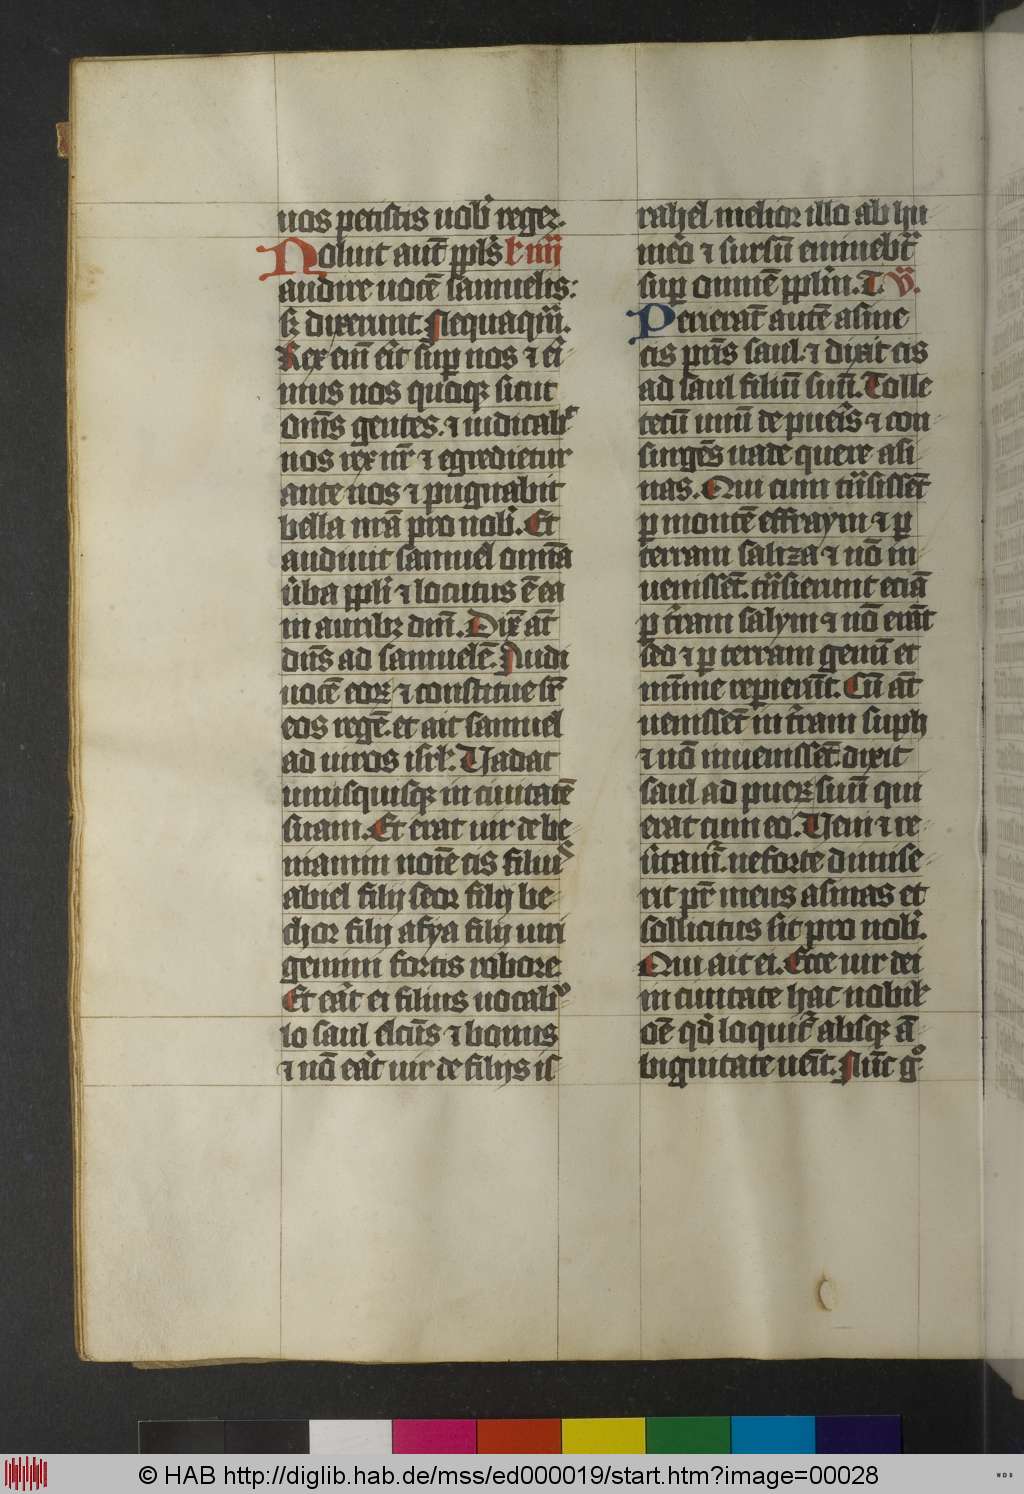 uos petistis uob̾ regeʒ.
Noluit aut̄ ppls̄ l' iiij
audire uocē samuelis:
sꝫ dixerunt. Nequaq̄m.
Rex enī erit suꝑ nos ⁊ eri-
mus nos quoqꝫ sicut
om̄s gentes. ⁊ iudicab̾
nos rex nr̄ ⁊ egredietur
ante nos ⁊ pugnabit
bella nr̄a pro nob̾. Et
audiuit samuel omn̄ia
ūba ppli̾ ⁊ locutus ē ea
in auribꝫ dn̄i. Dix̄ at̄
dn̄s ad samuelē. Audi
uocē eoꝝ ⁊ constitue sr̄
eos regē. et ait samuel
ad uiros isrl̾. Uadat
unusquisqꝫ in ciuitatē
suam. Et erat uir de be-
niamin noīe cis filius
abiel filij seor filij be-
chor filij afya filij uiri
gemini fortis robore
Et eāt ei filius uocab̾u
lo saul elcūs ⁊ bonus
⁊ nō eāt uir de filijs is-
rahel melior illo ab hu
mero ⁊ sursū eminebat̾
suꝑ omnem̄ pplm̄. T. V.
Perierāt autē asine
cis pr̄is saul. ⁊ dixit cis
ad saul filiū suū. Tolle
tecū unū de pueris ⁊ con-
surgēs uade quere asi
nas. Qui cum trāsissēt
ꝑ montē effraym ⁊ ꝑ
terram saliza ⁊ nō in-
uenissēt. trāsierunt eciā
ꝑ tr̄am salym ⁊ nō erāt
sed ⁊ ꝑ terram gemī et
mīme repierūt. Cū at̄
uenissēt in tr̄am suph
⁊ nō inuenissēt. dixit
saul ad pueꝝ suū qui
erat cum eo. Ueni ⁊ re-
ūtam̾. ne forte dimise-
rit pr̄ meus asinas et
sollicitus sit pro nob̾.
Qui ait ei. Ecce uir dei
in ciuitate hac nobil̾
oē qđ loquit̾ absqꝫ ā-
biguitate uenīt. Nūc gͦ
© HAB http://diglib.hab.de/mss/ed000019/start.htm?image=00028